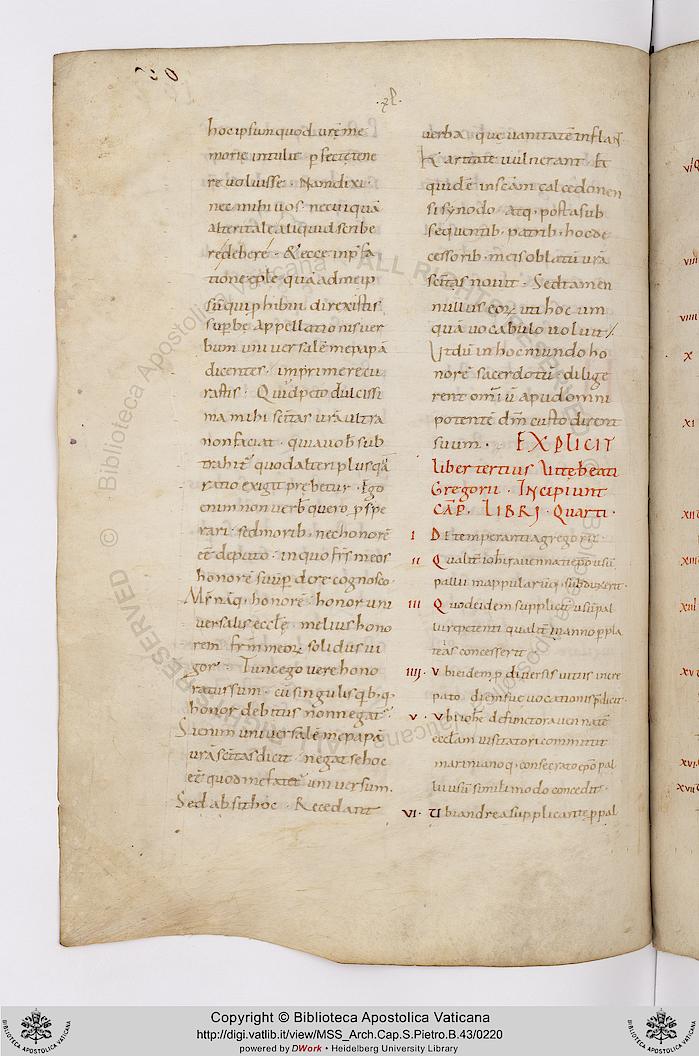 hoc ipsum quod urẽ me
morie intulit pfecte tene
re uoluisse. Nam dixi
nec mihi uos nec cuiquã
alteri tale aliquid scribe
re debere. & ecce in pfa
tione eple quã ad me ip
sũ qui phibui direxistis
supbe appellationis uer
bum uniuersalẽ me papã
dicentes. imprimere cu
rastis. Quod peto dulcissi
ma mihi scitas urã ultra
non faciat. quia uob sub
trahit quod alteri plus quã
ratio exigit prebetur. Ego
enim non uerb quero pspe
rari. sed morib. nec honorẽ
eẽ deputo. in quo frs meos
honorẽ suũ pdere cognosco.
Ms nãq. honorẽ. honor uni
uersalis eccle. melius hono
rem frm meor solidus ui
gor. Tunc ego uere hono
ratus sum. cũ singulis qb.q.
honor debitus non negat.
Si enim uniuersalẽ me papã
urã scitas dicit. negat se hoc
eẽ quod me fatet uniuersum.
Sed absit hoc. Recedant
uerba que uanitatẽ inflan
Karitatẽ uulnerant. Et
quidẽ in scã calcedonen
si synodo. atq. post a sub
sequentib. patrib. hoc de
cessorib. meis oblatũ urã
scitas nouit. Sed tamen
nullus eor. uti hoc um
quã uocabulo uoluit.
Ut dũ in hoc mundo ho
norẽ sacerdotũ dilige
rent omiũ apud omni
potentẽ dm custodirent
suum. EXPLICIT
liber tertius Uite beati
Gregorii. Incipiunt
CAP. LIBRI. Quarti.
I De temperantia gregorii.
II Qualit iohi rauennati epo usũ
pallii mappularũq. subduxerit.
III Quod eidem supplicti usũ pal
lii repetenti qualit in anno ppla
teas concesserit.
IIII. Ubi eidem p diuersis uitiis incre
pato. diem sue uocationis pdicit.
V. Ubi iohe defuncto rauennatẽ
ecclam uisitatori committit
marinianoq. consecrato epo pal
lii usũ simili modo concedit.
VI. Ubi andrea supplicante p pal
Copyright © Biblioteca Apostolica Vaticana
http://digi.vatlib.it/view/MSS_Arch.Cap.S.Pietro.B.43/0220
powered by DWork • Heidelberg University Library